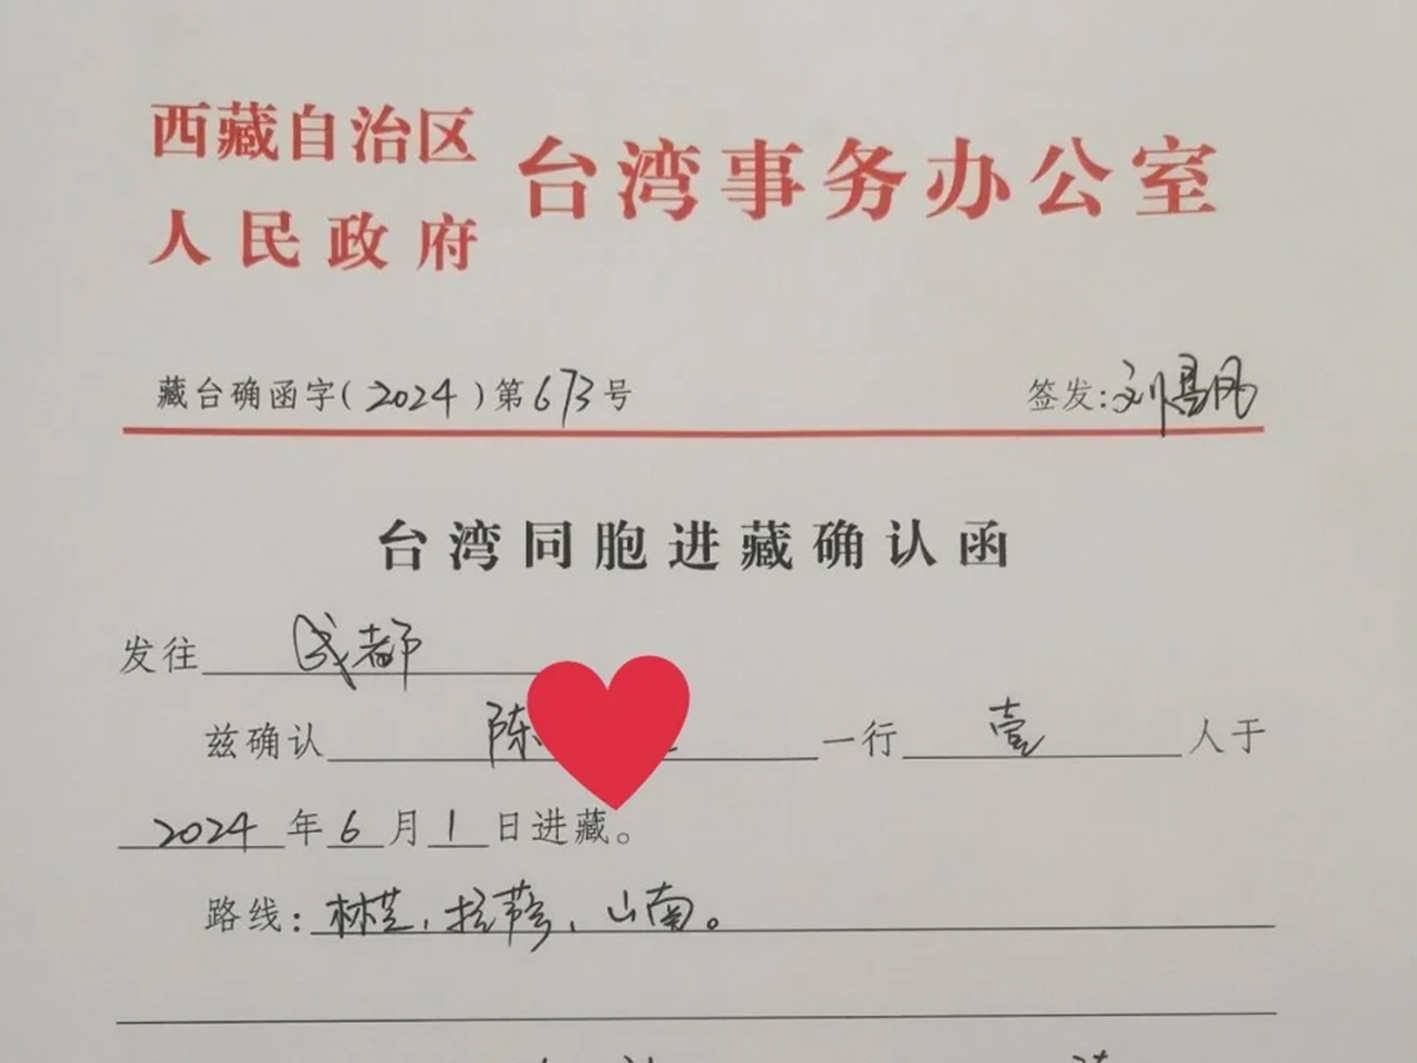 西藏自治区
人民政府
台湾事务办公室
藏台确函字(2024)第673号 签发:刘
台湾同胞进藏确认函
发往 成都
兹确认 陈 一行 壹 人于
2024年6月1日进藏。
路线:林芝,拉萨,山南。